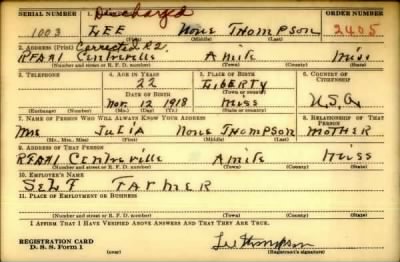 SERIAL NUMBER 1. Discharged ORDER NUMBER
1003 LEE None THOMPSON 2405
(First) (Middle) (Last)
2. ADDRESS (Print) Corrected R2.
RFD#1 Centreville Amite Miss
(Number and street or R. F. D. number) (Town) (County) (State)
3. TELEPHONE 4. AGE IN YEARS 5. PLACE OF BIRTH 6. COUNTRY OF CITIZENSHIP
22 LIBERTY
DATE OF BIRTH (Town or county)
Nov. 12 1918 Miss U.S.A.
(Exchange) (Number) (Mo.) (Day) (Yr.) (State or country)
7. NAME OF PERSON WHO WILL ALWAYS KNOW YOUR ADDRESS 8. RELATIONSHIP OF THAT PERSON
Mrs Julia None THOMPSON MOTHER
(Mr., Mrs., Miss) (First) (Middle) (Last)
9. ADDRESS OF THAT PERSON
RFD#1 Centreville Amite Miss
(Number and street or R. F. D. number) (Town) (County) (State)
10. EMPLOYER'S NAME
SELF FARMER
11. PLACE OF EMPLOYMENT OR BUSINESS
(Number and street or R. F. D. number) (Town) (County) (State)
I AFFIRM THAT I HAVE VERIFIED ABOVE ANSWERS AND THAT THEY ARE TRUE.
REGISTRATION CARD
D. S. S. Form 1 (over) Lee Thompson
(Registrant's signature)